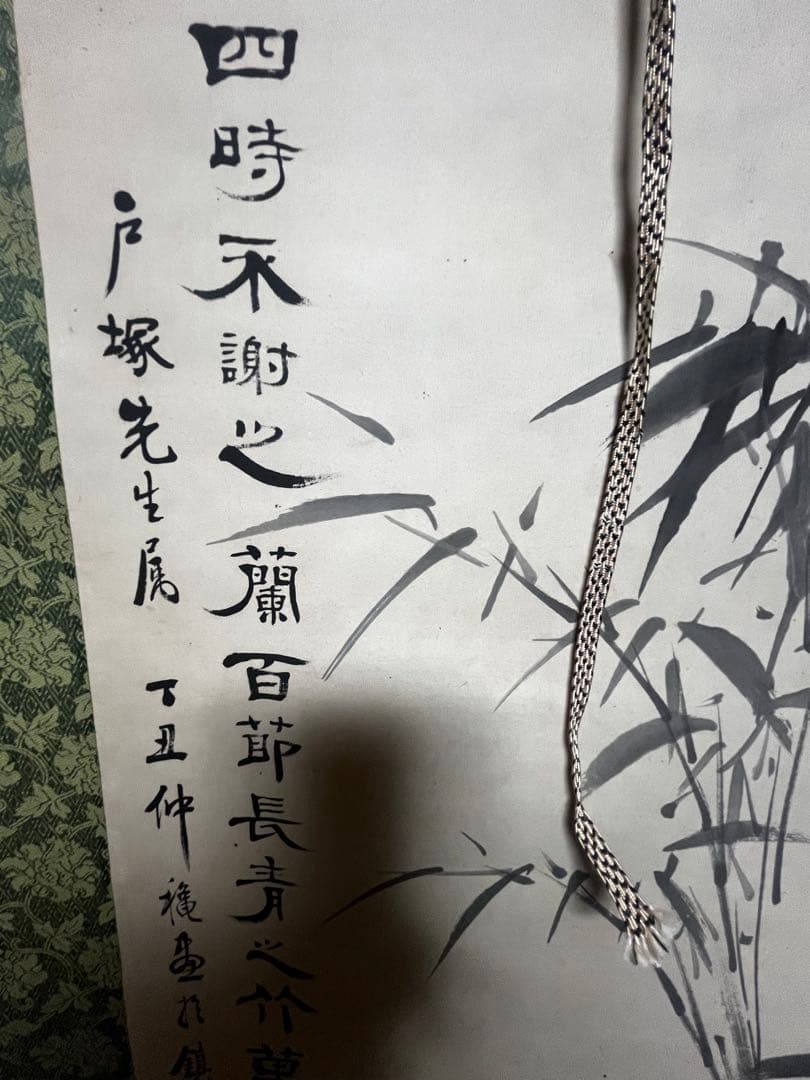 四時不謝之蘭百節長青之竹萬
戶塚先生属 丁丑仲穐画於鎮